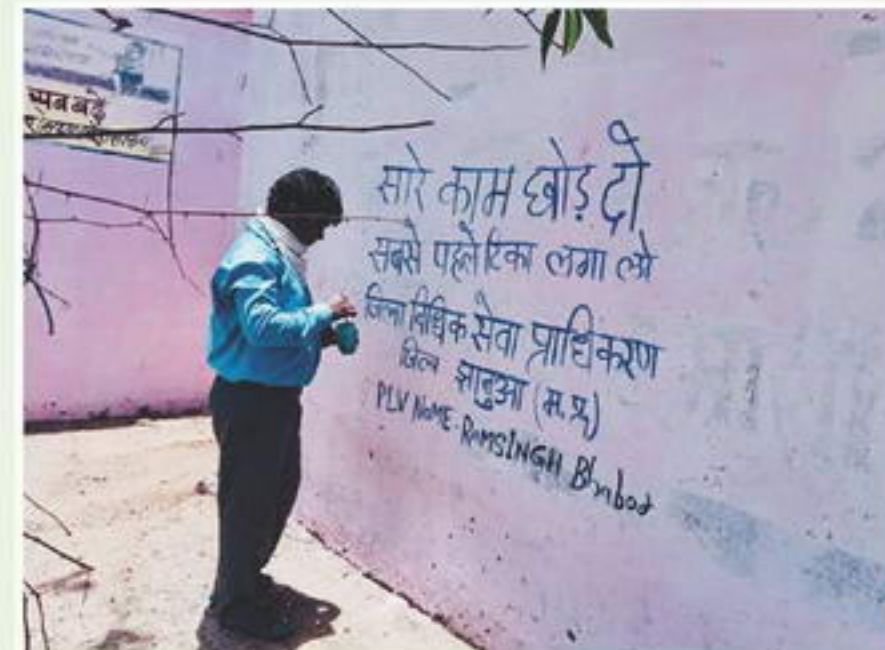 सब बढ़े
सारे काम छोड़ दो
सबसे पहले टिका लगा लो
जिला विधिक सेवा प्राधिकरण
जिला झाबुआ (म. प्र.)
PLV NAME- RAMSINGH Bhabod